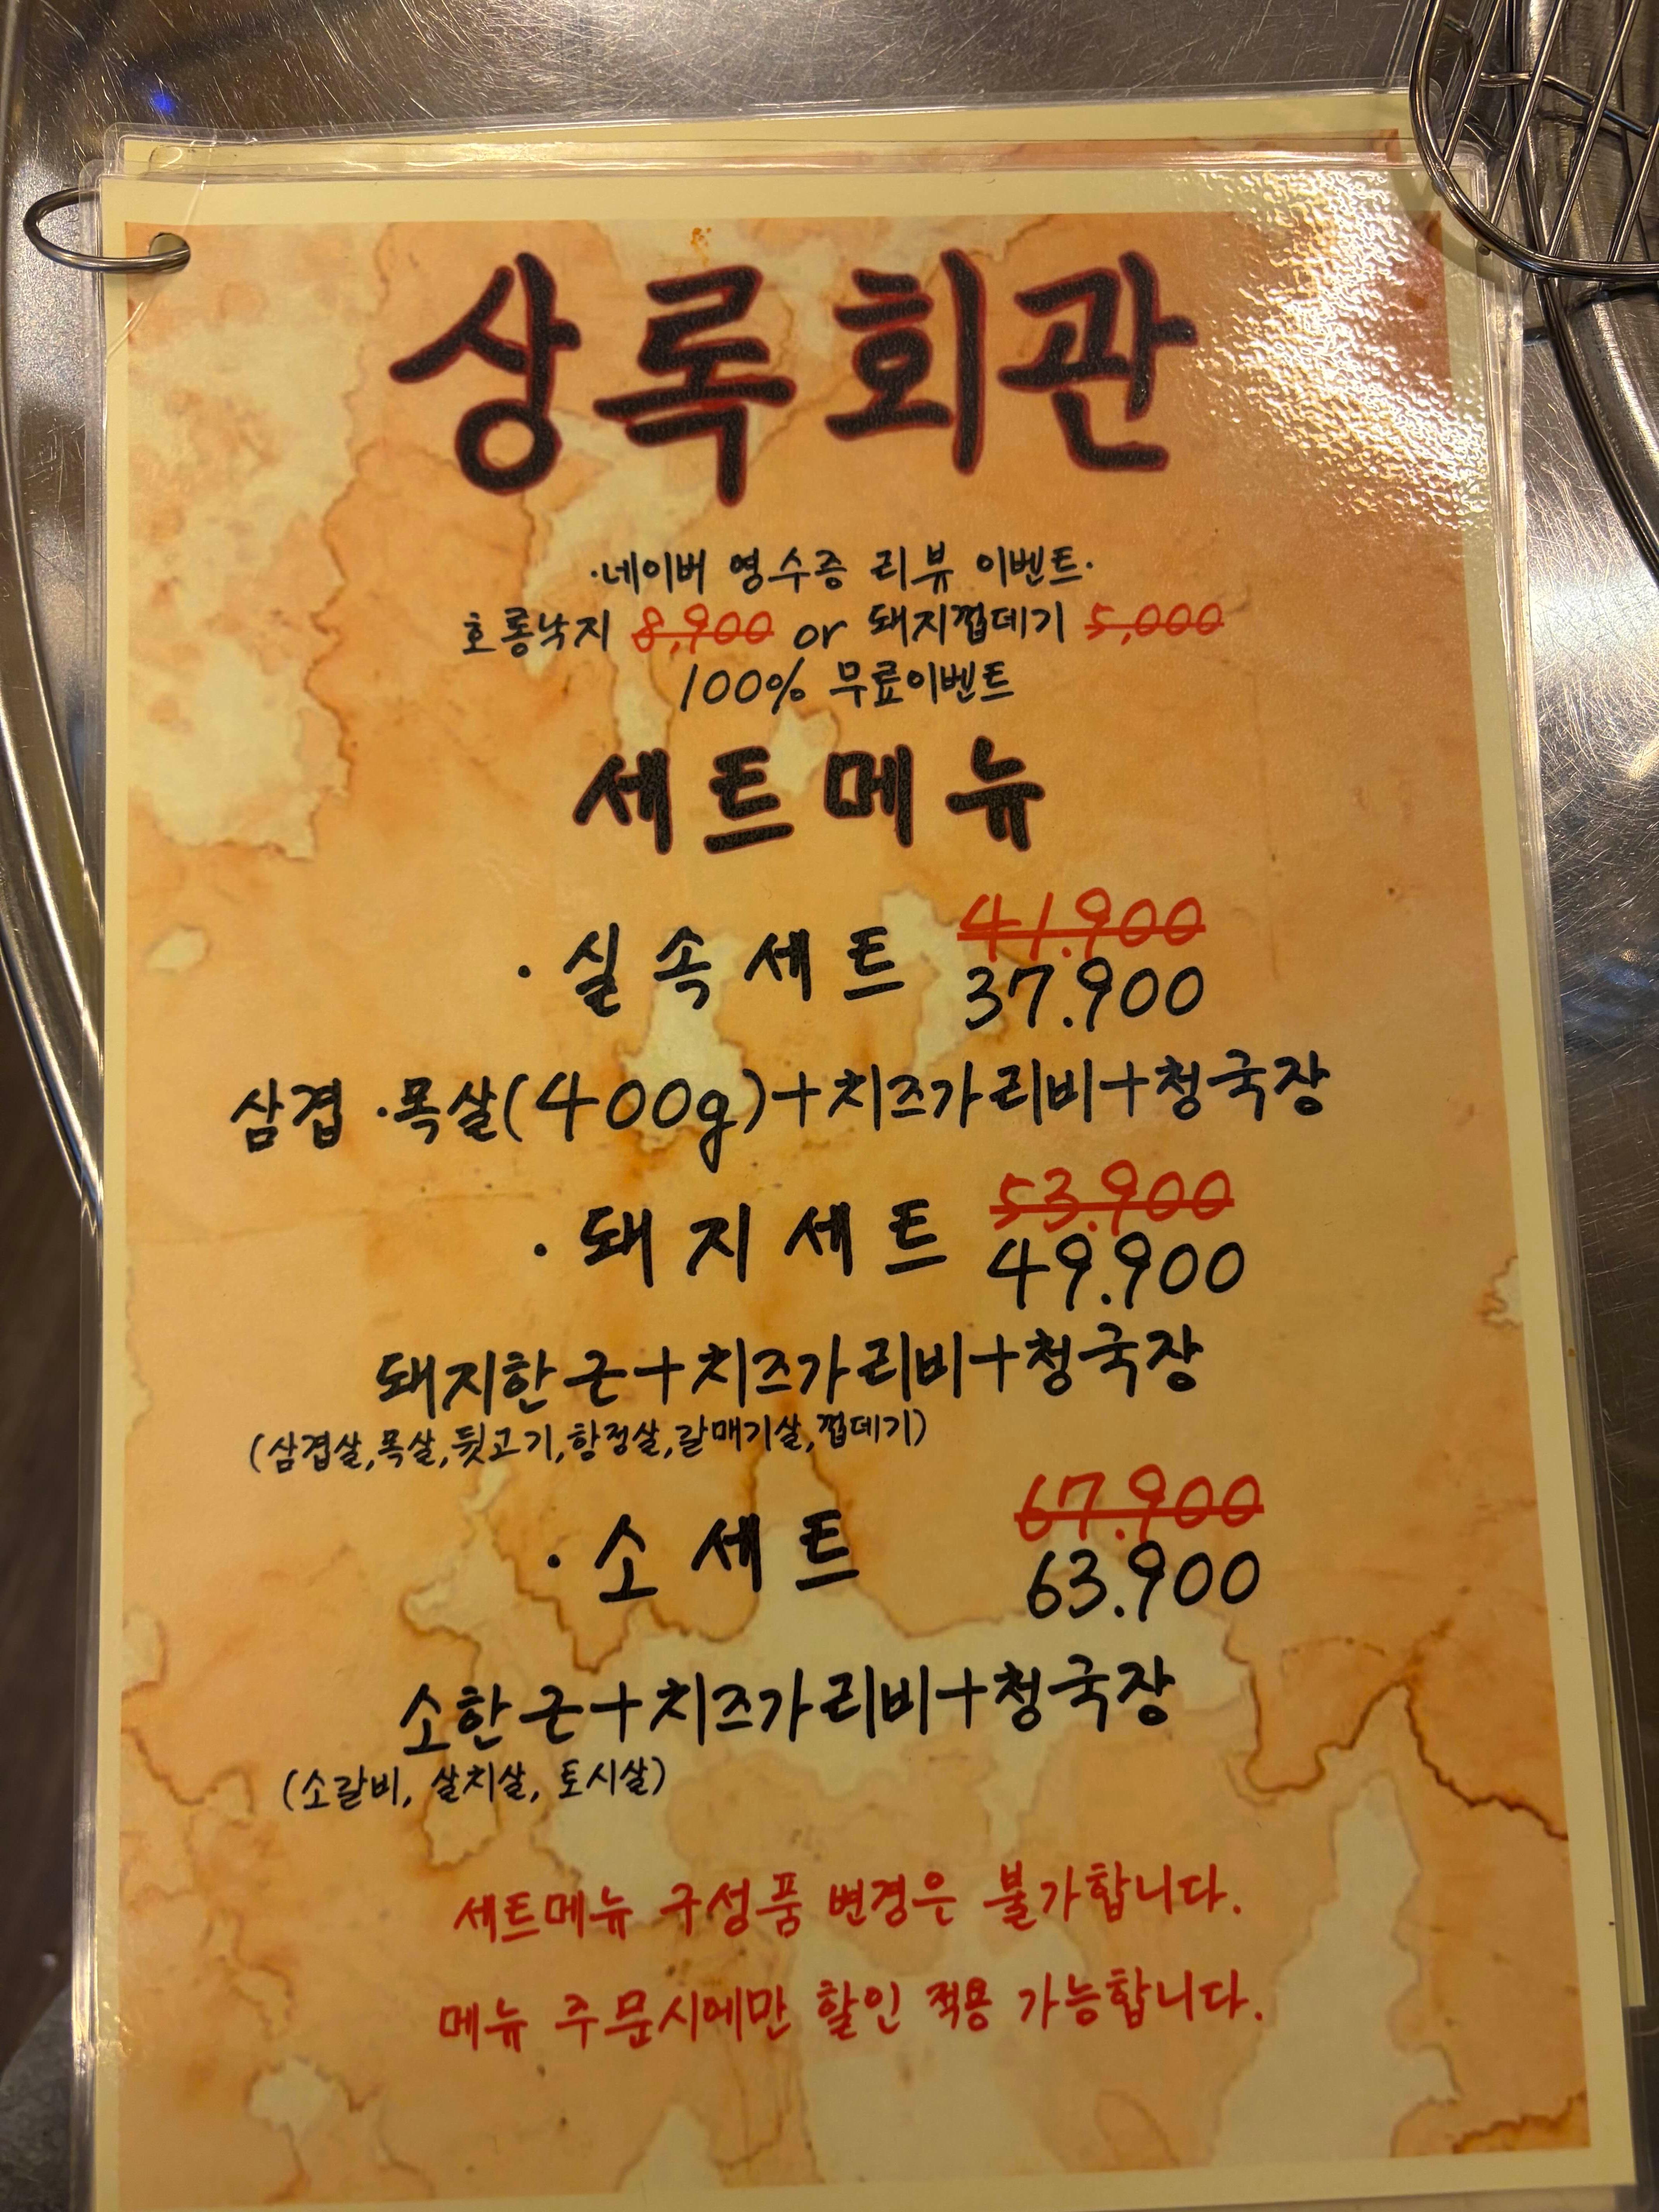 상록회관
·네이버 영수증 리뷰 이벤트·
호롱낙지 8,900 or 돼지껍데기 5,000
100% 무료이벤트
세트메뉴
·실속세트 41.900
37.900
삼겹·목살(400g)+치즈가리비+청국장
·돼지세트 53.900
49.900
돼지한근+치즈가리비+청국장
(삼겹살,목살,뒷고기,항정살,갈매기살,껍데기)
·소세트 67.900
63.900
소한근+치즈가리비+청국장
(소갈비, 살치살, 토시살)
세트메뉴 구성품 변경은 불가합니다.
메뉴 주문시에만 할인 적용 가능합니다.